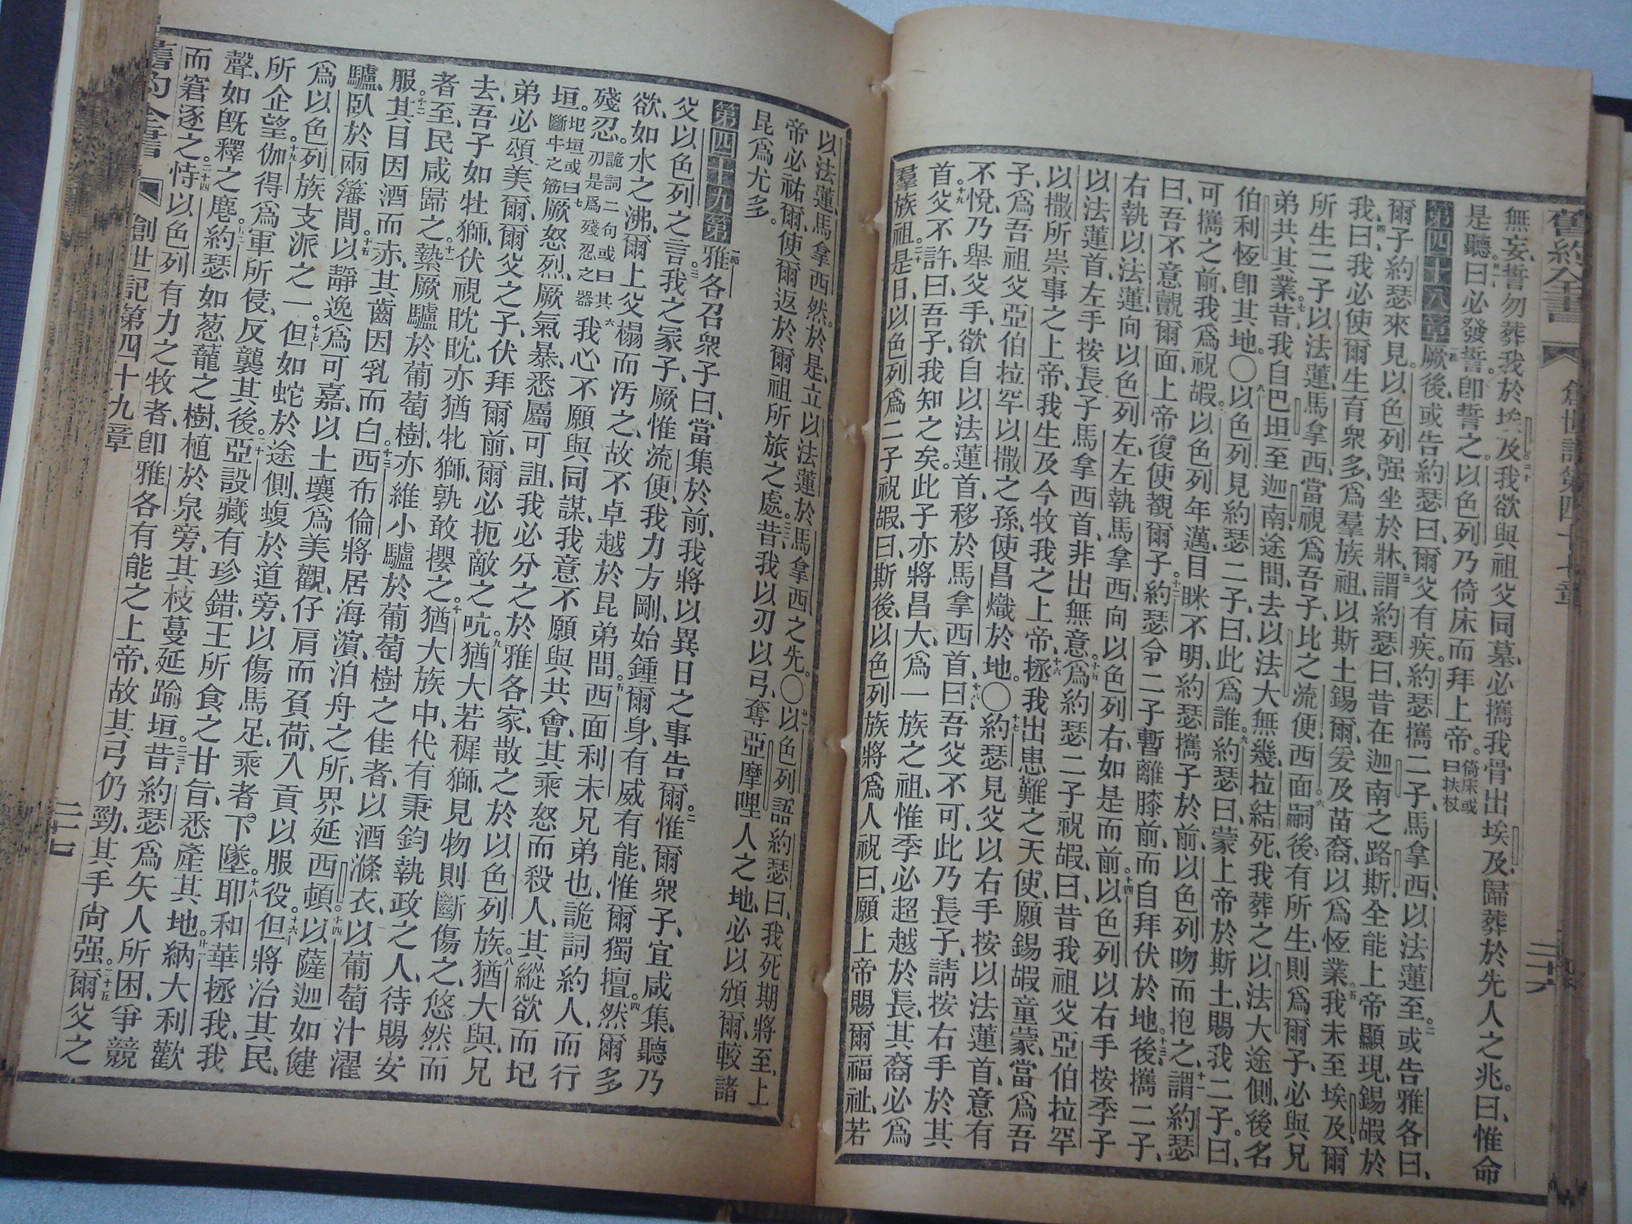 舊約全書 創世記第四十七章
無妄誓、勿葬我於埃及、我欲與祖父同墓、必攜我骨出埃及、歸葬於先人之兆。曰、惟命
是聽。曰、必發誓。卽誓之、以色列乃倚床而拜上帝。倚床或曰扶杖
第四十八章 厥後、或告約瑟曰、爾父有疾、約瑟攜二子、馬拿西、以法蓮至。或告雅各曰、
爾子約瑟來見。以色列強坐於牀、謂約瑟曰、昔在迦南之路斯、全能上帝顯現、錫嘏於
我曰、我必使爾生育衆多、爲羣族祖、以斯土錫爾、爰及苗裔、以爲恆業。我未至埃及、爾
所生二子、以法蓮、馬拿西、當視爲吾子、比之流便西面。嗣後有所生、則爲爾子、必與兄
弟共其業。昔我自巴坦至迦南途間、去以法大無幾、拉結死、我葬之以法大途側、後名
伯利恆、卽其地。〇以色列見約瑟二子、曰、此爲誰。約瑟曰、蒙上帝於斯土、賜我二子。曰、
可攜之前、我爲祝嘏。以色列年邁、目眯不明、約瑟攜子於前、以色列吻而抱之。謂約瑟
曰、吾不意覿爾面、上帝復使觀爾子。約瑟令二子暫離膝前、而自拜伏於地。後攜二子、
右執以法蓮、向以色列左、左執馬拿西、向以色列右、如是而前。以色列以右手按季子
以法蓮首、左手按長子馬拿西首、非出無意。爲約瑟二子祝嘏曰、昔我祖父亞伯拉罕
以撒所崇事之上帝、我生及今牧我之上帝、拯我出患難之天使、願錫嘏童蒙、當爲吾
子、爲吾祖父亞伯拉罕以撒之孫、使昌熾於地。〇約瑟見父以右手按以法蓮首、意有
不悅、乃舉父手、欲自以法蓮首移於馬拿西首、曰、吾父不可、此乃長子、請按右手於其
首。父不許、曰、吾子、我知之矣、此子亦將昌大、爲一族之祖、惟季必超越於長、其裔必爲
羣族祖。是日以色列爲二子祝嘏、曰、斯後以色列族、將爲人祝曰、願上帝賜爾福祉、若
以法蓮馬拿西然。於是立以法蓮於馬拿西之先。〇以色列語約瑟曰、我死期將至、上
帝必祐爾、使爾返於爾祖所旅之處。昔我以刃以弓、奪亞摩哩人之地、必以頒爾、較諸
昆爲尤多。
第四十九章 雅各召衆子曰、當集於前、我將以異日之事告爾。惟爾衆子、宜咸集、聽乃
父以色列之言。我之冢子、厥惟流便、我力方剛、始鍾爾身、有威有能、惟爾獨擅。然爾多
欲、如水之沸、爾上父榻而汚之、故不卓越於昆弟間。西面利未兄弟也、詭詞約人而行
殘忍。詭詞二句或曰其刃是爲殘忍之器 我心不願與同謀、我意不願與共會、其乘怒而殺人、其縱欲而圮
垣。圮垣或曰斷牛之筋 厥怒烈、厥氣暴、悉屬可詛、我必分之於雅各家、散之於以色列族。猶大與、兄
弟必頌美爾、爾父之子、伏拜爾前、爾必扼敵之吭。猶大若穉獅、見物則斷傷之、悠然而
去、吾子如牡獅、伏視眈眈、亦猶牝獅、孰敢攖之。猶大族中、代有秉鈞執政之人、待賜安
者至、民咸歸之。縶厥驢於葡萄樹、亦維小驢於葡萄樹之佳者、以酒滌衣、以葡萄汁濯
服。其目因酒而赤、其齒因乳而白。西布倫將居海濱、泊舟之所、界延西頓。以薩迦如健
驢、臥於兩藩間。以靜逸爲可嘉、以土壤爲美觀、仔肩而負荷、入貢以服役。但將治其民、
爲以色列族支派之一。但如蛇於途側、蝮於道旁、以傷馬足、乘者下墜。耶和華拯我、我
所企望。伽得爲軍所侵、反襲其後。亞設藏有珍錯、王所食之甘旨、悉產其地。納大利歡
聲、如旣釋之麀。約瑟如葱蘢之樹、植於泉旁、其枝蔓延踰垣。昔約瑟爲矢人所困、爭競
而窘逐之。恃以色列有力之牧者、卽雅各有能之上帝、故其弓仍勁、其手尙强。爾父之
舊約全書 創世記第四十九章 二十七